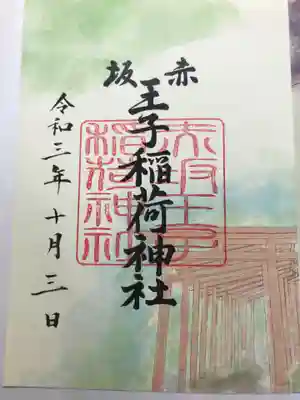 赤坂
王子稲荷神社
令和三年十月三日
稲荷神社